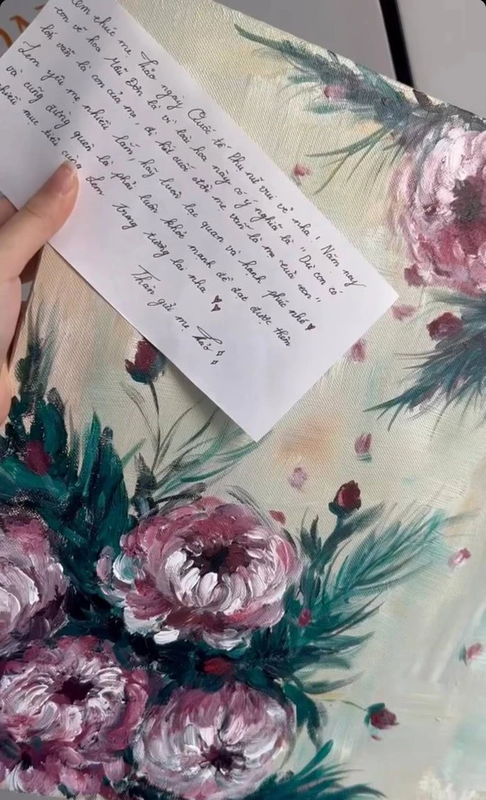 em chúc mẹ Thảo ngày Quốc tế Phụ nữ vui vẻ nha! Năm nay
em vẽ hoa Mẫu Đơn là vì loài hoa này có ý nghĩa là "Dù con có
lớn vẫn là con của mẹ, đi hết cuộc đời mẹ vẫn là mẹ của con"
Lem yêu mẹ nhiều lắm, hãy luôn lạc quan và hạnh phúc nhé ♥
và cũng đừng quên là phải luôn khỏe mạnh để đạt được thêm
nhiều mục tiêu cùng Lem trong tương lai nha ♥♥
Thân gửi mẹ Thảo